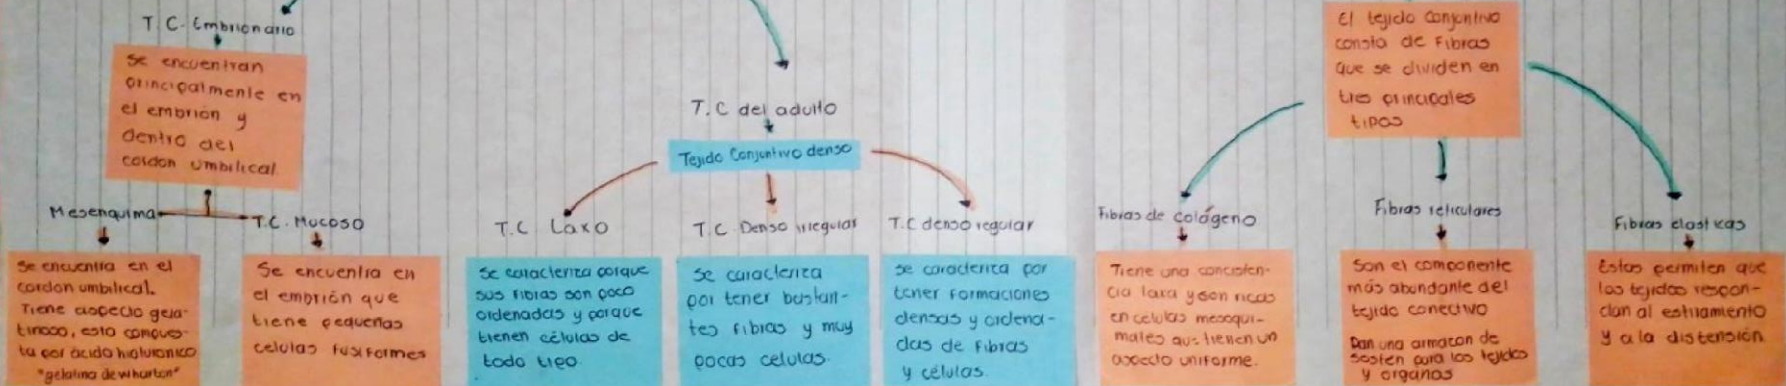 T.C. Embrionario
Se encuentran
principalmente en
el embrión y
dentro del
cordon umbilical
Mesenquima
T.C. Mucoso
Se encuentra en el
cordon umbilical.
Tiene aspecto gela-
tinoso, esta compues-
ta por ácido hialuronico
"gelatina de wharton"
Se encuentra en
el embrión que
tiene pequeñas
celulas fusiformes
T.C del adulto
Tejido Conjuntivo denso
T.C Laxo
T.C. Denso irregular
T.C denso regular
Se caracteriza porque
sus fibras son poco
ordenadas y porque
tienen células de
todo tipo.
Se caracteriza
por tener bastan-
tes fibras y muy
pocas celulas.
se caracteriza por
tener formaciones
densas y ordena-
das de fibras
y células.
El tejido conjuntivo
consta de fibras
que se dividen en
tres principales
tipos
Fibras de colágeno
Fibras reticulares
Fibras elasticas
Tiene una concisten-
cia laxa y son ricas
en celulas mesoqui-
males que tienen un
aspecto uniforme.
Son el componente
más abundante del
tejido conectivo
Dan una armazon de
sosten para los tejidos
y organos
Estas permiten que
los tejidos respon-
dan al estiramiento
y a la distensión